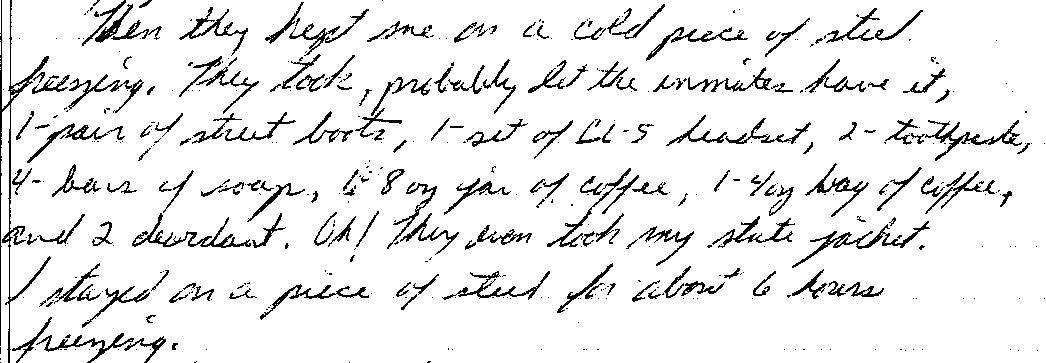 Then they kept me on a cold piece of steel
freezing. They took, probably let the inmates have it,
1-pair of street boots, 1-set of CL-5 headset, 2- toothpaste,
4- bars of soap, 8 oz jar of coffee, 1-4oz bag of coffee,
and 2 deordant. Oh! They even took my state jacket.
I stayed on a piece of steel for about 6 hours
freezing.